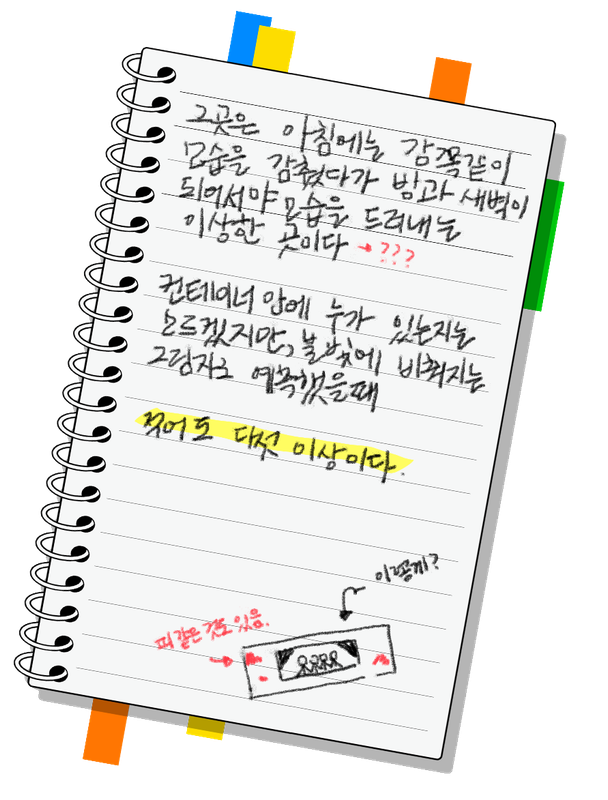 그곳은 아침에는 감쪽같이
모습을 감췄다가 밤과 새벽이
되어서야 모습을 드러내는
이상한 곳이다 → ???
컨테이너 안에 누가 있는지는
모르겠지만, 불빛에 비춰지는
그림자로 예측했을때
적어도 다섯 이상이다.
이렇게?
피같은 것도 있음.